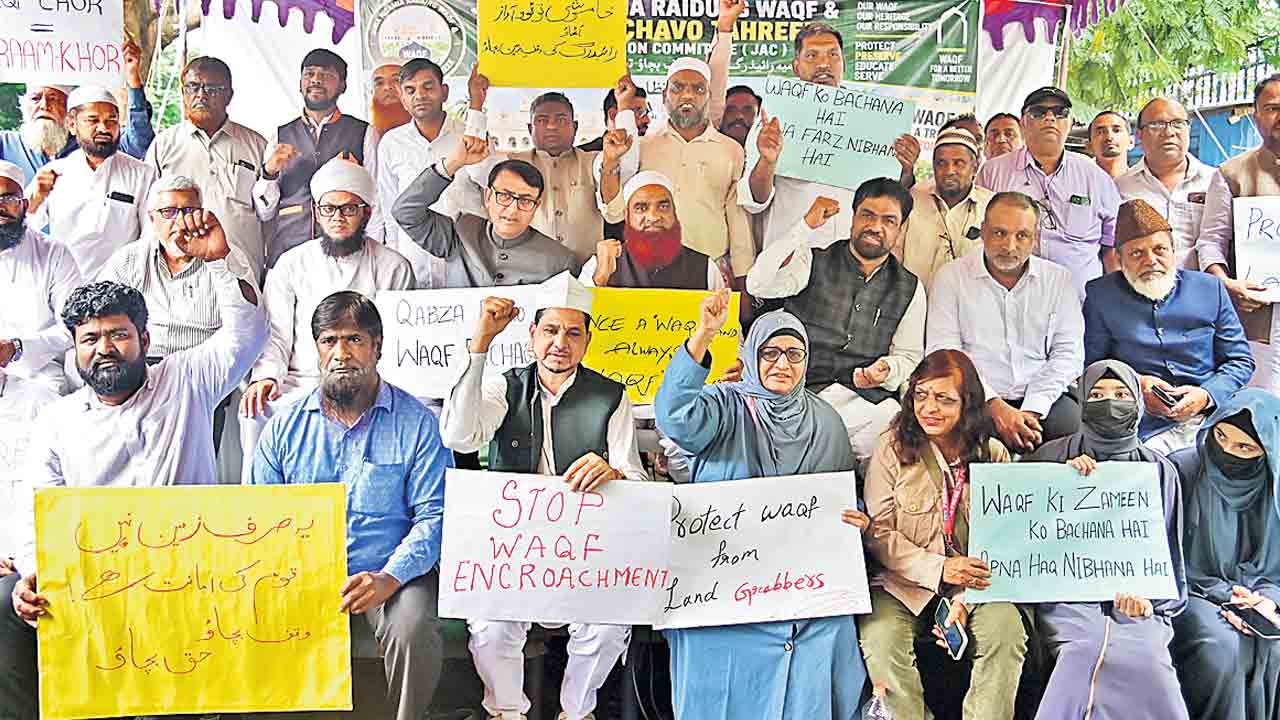 CHOR
RAAM-KHOR
WAQF
خاموشی توڑو آواز
اٹھاؤ
A RAIDURG WAQF &
CHAVO TAHREE
ON COMMITTEE (JAC)
OUR WAQF
OUR HERITAGE
OUR RESPONSIBILITY
PROTECT
PRESERVE
EDUCATE
SERVE
WAQF
FOR A BETTER
TOMORROW
WAQF KO BACHANA
HAI
FARZ NIBHANA
HAI
QABZA
WAQF
NCE A WAQF AND
ALWAYS
WAQF
یہ صرف زمین نہیں
قوم کی امانت ہے!
وقف بچاؤ
حق بچاؤ
STOP
WAQF
ENCROACHMENT
Protect waqf
from
Land Grabbers
WAQF KI ZAMEEN
KO BACHANA HAI
APNA HAQ NIBHANA HAI